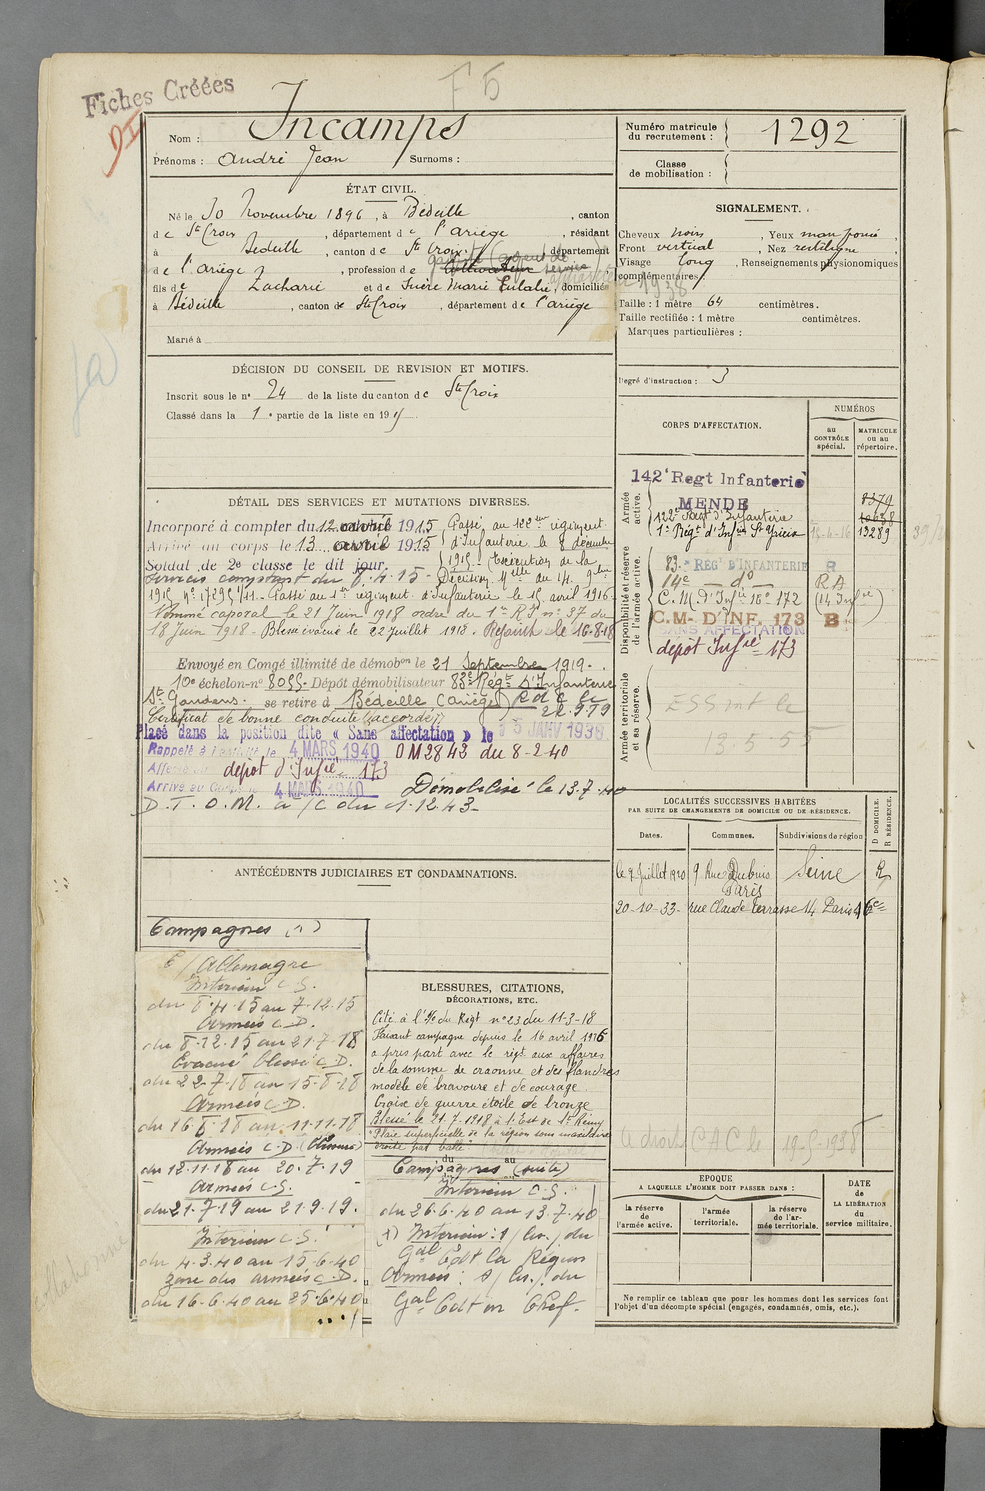 Fiches Créées
F 5
Nom : Incamps
Prénoms : André Jean Surnoms :
Numéro matricule du recrutement : 1292
Classe de mobilisation :
ÉTAT CIVIL.
Né le 30 Novembre 1896, à Bédeille, canton
de Ste Croix, département de l'ariège, résidant
à Bédeille, canton de Ste Croix, département
de l'ariège, profession de cultivateur
fils de Zacharie et de Marie Eulalie, domiciliés
à Bédeille, canton de Ste Croix, département de l'ariège
Marié à
SIGNALEMENT.
Cheveux noirs, Yeux
Front vertical, Nez rectiligne
Visage long, Renseignements physionomiques
complémentaires
1938
Taille : 1 mètre 64 centimètres.
Taille rectifiée : 1 mètre centimètres.
Marques particulières :
Degré d'instruction : 3
DÉCISION DU CONSEIL DE REVISION ET MOTIFS.
Inscrit sous le no 24 de la liste du canton de Ste Croix
Classé dans la 1e partie de la liste en 19
DÉTAIL DES SERVICES ET MUTATIONS DIVERSES.
Incorporé à compter du 12 avril 1915, Passé au 122eme régiment
Arrivé au corps le 13 avril 1915 d'Infanterie le 8 décembre
Soldat de 2e classe le dit jour. 1915 - Exécution de la
services comptant du 8.4.15 - Décision Melle du 14 9bre
1915 Passé au 1er régiment d'Infanterie le 15 avril 1916
Nommé caporal le 21 Juin 1918 ordre du 1er R.I. no 37 du
18 Juin 1918 - Blessé évacué le 22 Juillet 1918. Rejoint le 16-8-18
Envoyé en Congé illimité de démobon le 21 Septembre 1919.
10e échelon - no 8055 - Dépôt démobilisateur 83e Régt d'Infanterie
St Gaudens. se retire à Bédeille (ariège) R d C le
22.9.19
Certificat de bonne conduite "accordé"
Placé dans la position dite « Sans affectation » le 15 JANV 1938
Rappelé à l'activité le 4 MARS 1940 O M 2843 du 8-2-40
Affecté au dépôt d'Infie 173
Arrivé au Corps le 4 MARS 1940 Démobilisé le 13.7.40
D.T.O.M. a/c du 1.12.43
CORPS D'AFFECTATION.
NUMÉROS
au CONTRÔLE spécial.
MATRICULE ou au répertoire.
Armée active.
142e Regt Infanterie
MENDE
8379
122e Regt d'Infanterie
1er Régt d'Infie St Yrieix 13289
Disponibilité et réserve de l'armée active.
83e RÉGt D'INFANTERIE R
14e do RA
C. M. d'Infie 172
C.M. D'INF. 173 B
SANS AFFECTATION
dépôt Infie 173
Armée territoriale et sa réserve.
13.5.55
LOCALITÉS SUCCESSIVES HABITÉES
PAR SUITE DE CHANGEMENTS DE DOMICILE OU DE RÉSIDENCE.
Dates. Communes. Subdivisions de région D DOMICILE. R RÉSIDENCE.
le 9 Juillet 1920 9 Rue Dubuis Paris Seine R
20-10-33 rue Claude Terrasse 14 Paris
ANTÉCÉDENTS JUDICIAIRES ET CONDAMNATIONS.
Campagnes (1)
C/Allemagne
Intérieur C.S.
du 8.4.15 au 7.12.15
Armées C.D.
du 8.12.15 au 21.7.18
Evacué blessé C.D.
du 22.7.18 au 15.8.18
Armées C.D.
du 16.8.18 au 11.11.18
Armées C.D.
du 12.11.18 au 20.7.19
Armées C.S.
du 21.7.19 au 21.9.19.
Intérieur C.S.
du 4.3.40 au 15.6.40
zone des armées C.D.
du 16.6.40 au 25.6.40
BLESSURES, CITATIONS,
DÉCORATIONS, ETC.
Cité à l'O/ce du Regt no 23 du 11-3-18
Faisant campagne depuis le 16 avril 1916
a pris part avec le régt aux affaires
de la somme de craonne et des flandres
modèle de bravoure et de courage
Croix de guerre étoile de bronze
Blessé le 21.7.1918 à l'Est de St Rémy
Plaie superficielle de la région sous maxillaire
droite par balle
du au
Campagnes (suite)
Intérieur C.S.
du 26.6.40 au 13.7.40
(1) Intérieur : du
Gal Cdt la Région
Armées : du
Gal Cdt en Chef.
C A C le 19-5-1938
EPOQUE
A LAQUELLE L'HOMME DOIT PASSER DANS :
la réserve de l'armée active.
l'armée territoriale.
la réserve de l'armée territoriale.
DATE de LA LIBÉRATION du service militaire.
Ne remplir ce tableau que pour les hommes dont les services font
l'objet d'un décompte spécial (engagés, condamnés, omis, etc.).